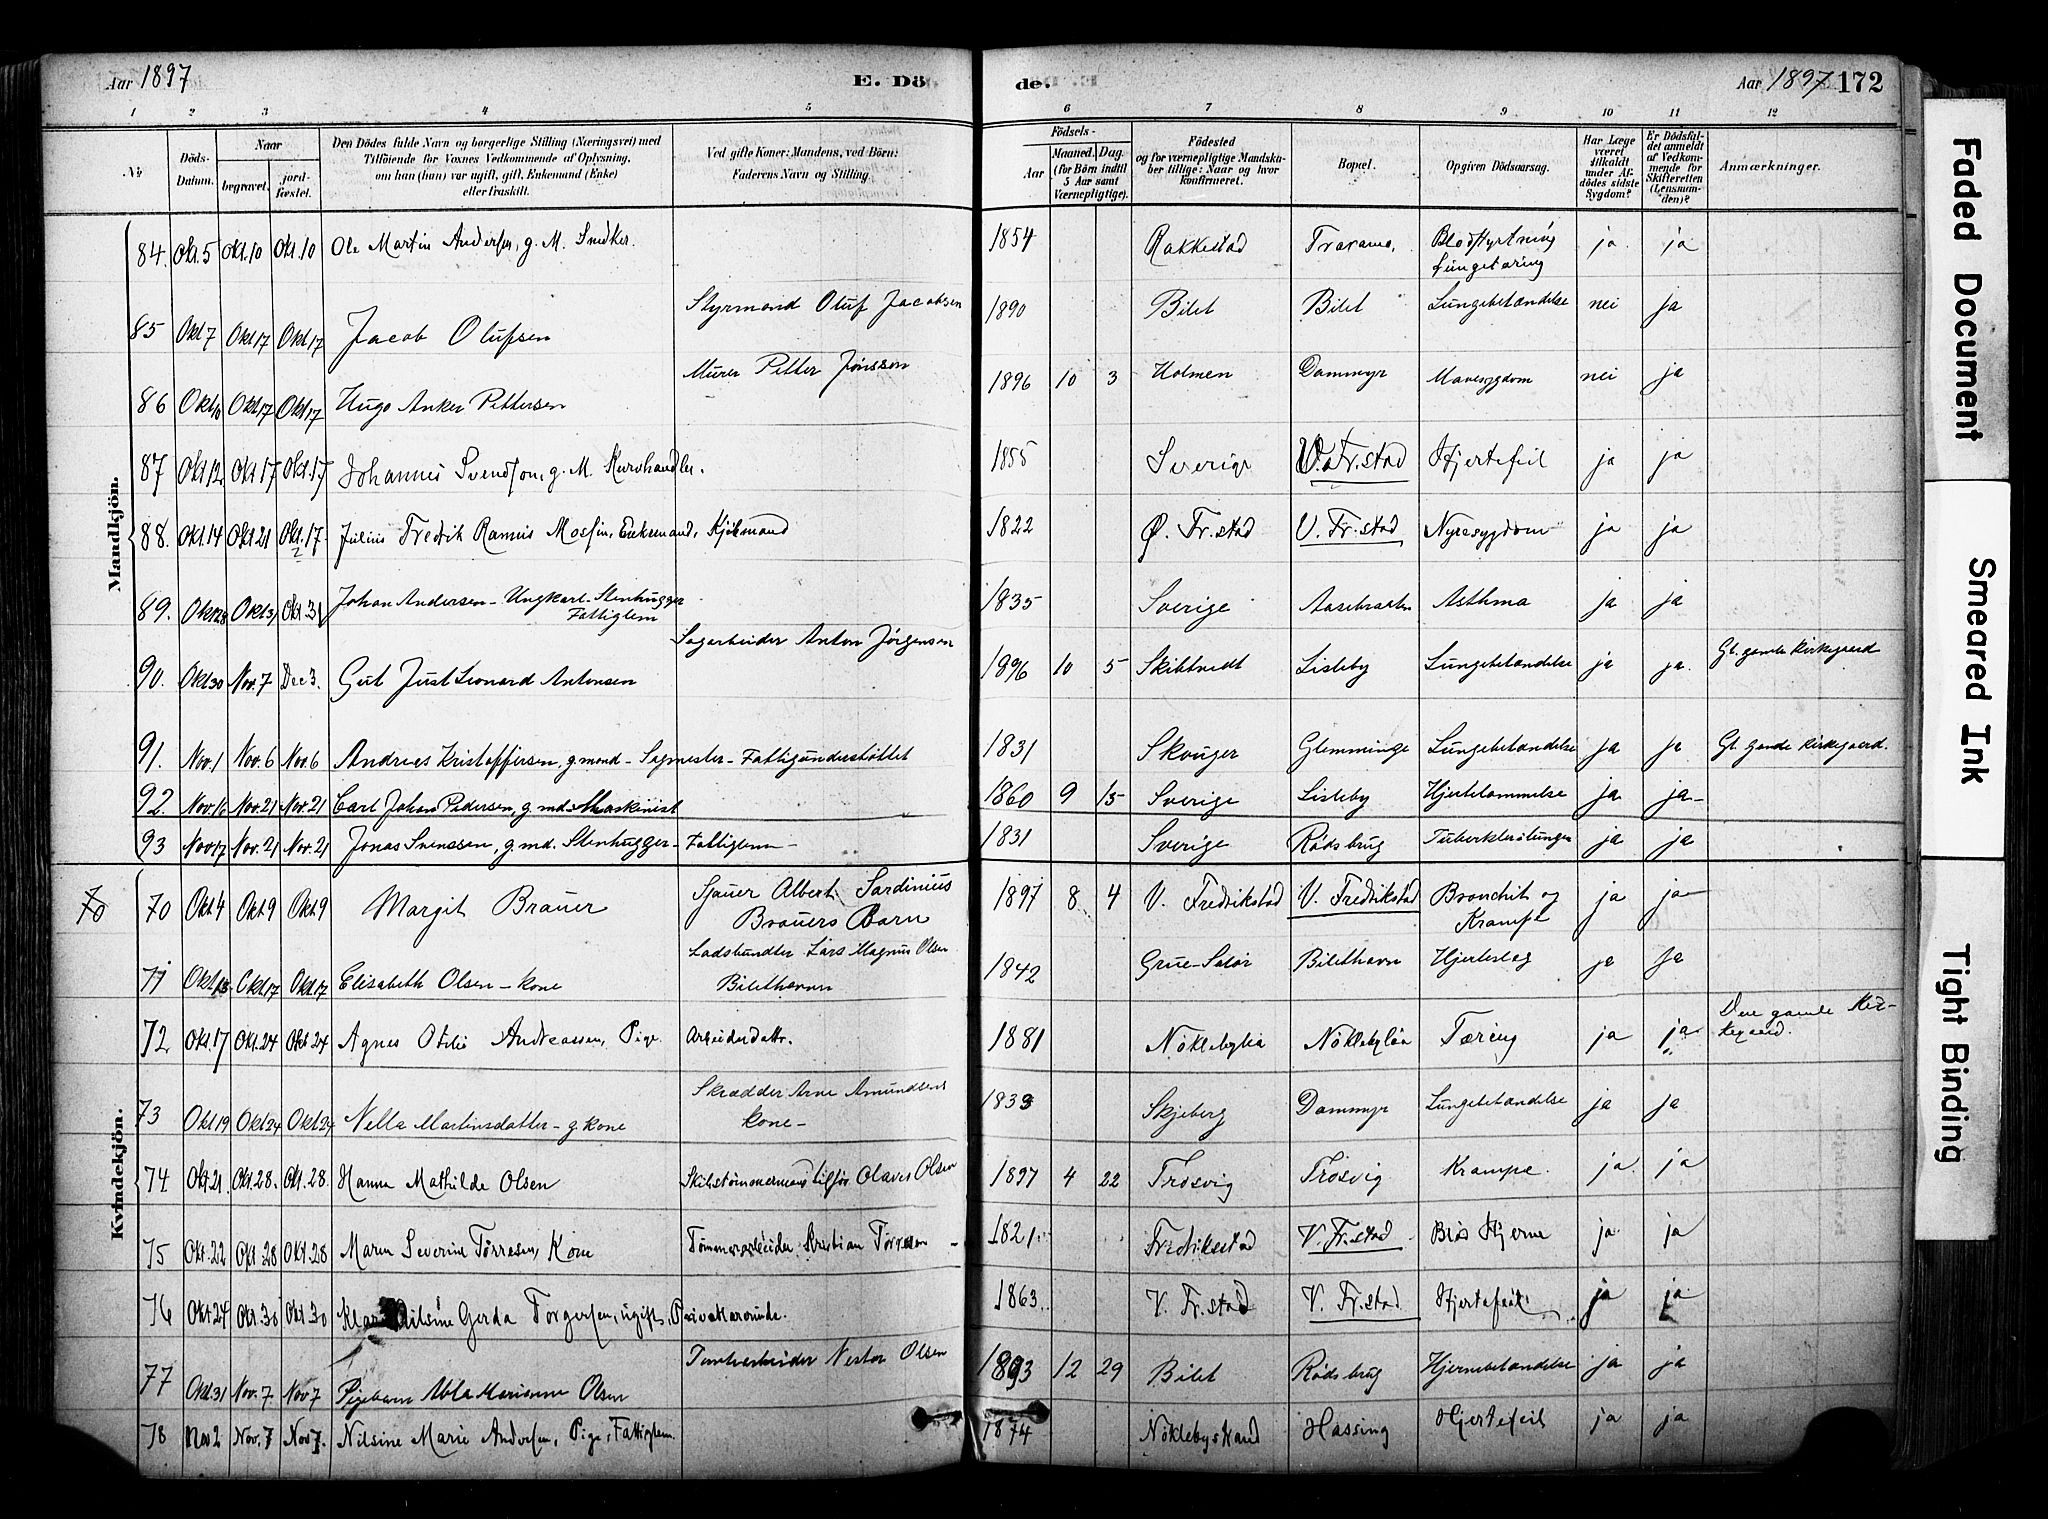 Aar 1897 E. Dö
de. Aar 1897 172
1 2 3 4 5 6 7 8 9 10 11 12
Nr
Döds-Datum.
Naar
begravet.
jord-fæstet.
Den Dödes fulde Navn og borgerlige Stilling (Næringsvei) med
Tilföiende for Voxnes Vedkommende af Oplysning,
om han (hun) var ugift, gift, Enkemand (Enke)
eller fraskilt.
Ved gifte Koner: Mandens, ved Börn:
Faderens Navn og Stilling.
Födsels-
Aar
Maaned. Dag.
(for Börn indtil
5 Aar samt
Værnepligtige).
Födested
og for værnepligtige Mandska-
ber tillige: Naar og hvor
konfirmeret.
Bopæl.
Opgiven Dödsaarsag.
Har Læge
været
tilkaldt
under Af-
dödes sidste
Sygdom?
Er Dödsfal-
det anmeldt
af Vedkom-
mende for
Skifteretten
(Lensman-
den)?
Anmærkninger.
Mandkjön.
84. Okt. 5 Okt. 10 Okt. 10 Ole Martin Andersen, g. M. Snedker. 1854 Rakkestad Traramo, Blodstyrtning Lungetæring ja ja
85 Okt 7 Okt 17 Okt 17 Jacob Olufsen Styrmand Oluf Jacobsen 1890 Bilet Bilet Lungebetændelse nei ja
86 Okt 10 Okt 17 Okt 17 Hugo Anker Pettersen Murer Petter Jönsson 1896 10 3 Holmen Dammyr Mavesygdom nei ja
87 Okt 12 Okt 17 Okt. 17 Johannes Svendson, g. M. Kurvhandler. 1855 Sverige V. Fr.stad Hjertefeil ja ja
88. Okt. 14 Okt 21 Okt. 17. Julius Fredrik Ramus Mossin, Enkemand, Kjöbmand 1822 Ø. Fr.stad V. Fr.stad Nyresygdom ja ja
89. Okt 28 Okt 31 Okt. 31 Johan Andersen - Ungkarl - Stenhugger Fattiglem 1835 Sverige Aasebraaten Asthma ja ja
90. Okt 30 Nov. 7 Dec 3. Gut Just Leonard Antonsen Sagarbeider Anton Jörgensen 1896 10 5 Skibtvedt Lisleby Lungebetændelse ja ja. Gl. gamle Kirkegaard
91. Nov. 1 Nov. 6 Nov. 6 Andreas Kristoffersen, g mand - Sagmester - Fattigunderstöttet 1831 Skouger Glemminge Lungebetændelse ja ja Gl. gamle Kirkegaard.
92. Nov. 16 Nov. 21 Nov. 21 Carl Johan Pedersen, g md. Maskinist 1860 9 15 Sverige Lisleby Hjertelammelse ja ja -
93 Nov 17 Nov. 21 Nov. 21 Jonas Svenssen, g. md. Stenhugger - Fattiglem - 1831 Sverige Rödsbrug ja ja
Kvindekjön.
70 70 Okt 4 Okt 9 Okt 9 Margit Brauer Sjauer Albert Sardinius Brauers Barn 1897 8 4 V. Fredrikstad V. Fredrikstad Bronchit og Krampe ja ja
71 Okt 13 Okt 17 Okt 17 Elisabeth Olsen - kone Lars Magnus Olsen Bilethavn 1842 Grue-Solör Bilethavn Hjerteslag ja ja
72 Okt. 17 Okt. 24 Okt 24 Agnes Otilie Andreassen, Pige. Arbeiderdattr. 1881 Nöklebylia Nöklebylia Tæring ja ja Den gamle Kir-kegaard.
73 Okt 19 Okt 24 Okt 24 Nella Martinsdatter - g. kone Skrædder Arne Amundsens kone - 1839 Skjeberg Dammyr Lungebetændelse ja ja
74 Okt 21. Okt. 28. Okt. 28. Hanna Mathilde Olsen Skibstømmermand Olaves Olsen 1897 4 22 Trosvig Trosvig Krampe. ja. ja
75 Okt. 22 Okt 28 Okt. 28 Maren Severine Törresen, Kone Tömmerarbeider Kristian Törresen - 1821 Fredrikstad V. Fr.stad Hjerne ja. ja
76 Okt 24 Okt. 30 Okt 30 Nilsine Gerda Torgersen, ugift, Privatlærerinde. 1863 V. Fr.stad V. Fr.stad Hjertefeil ja ja
77 Okt. 31 Nov. 7 Nov 7 Pigebarn Abla Marianne Olsen Tomtearbeider Nestor Olsen 1893 12 29 Bilet Rödsbrug Hjernebetændelse ja ja
78 Nov 2 Nov. 7 Nov 7. Nilsine Marie Andersen, Pige, Fattiglem. 1874 Nöklebystrand Hassing Hjertefeil ja ja
Faded Document
Smeared Ink
Tight Binding